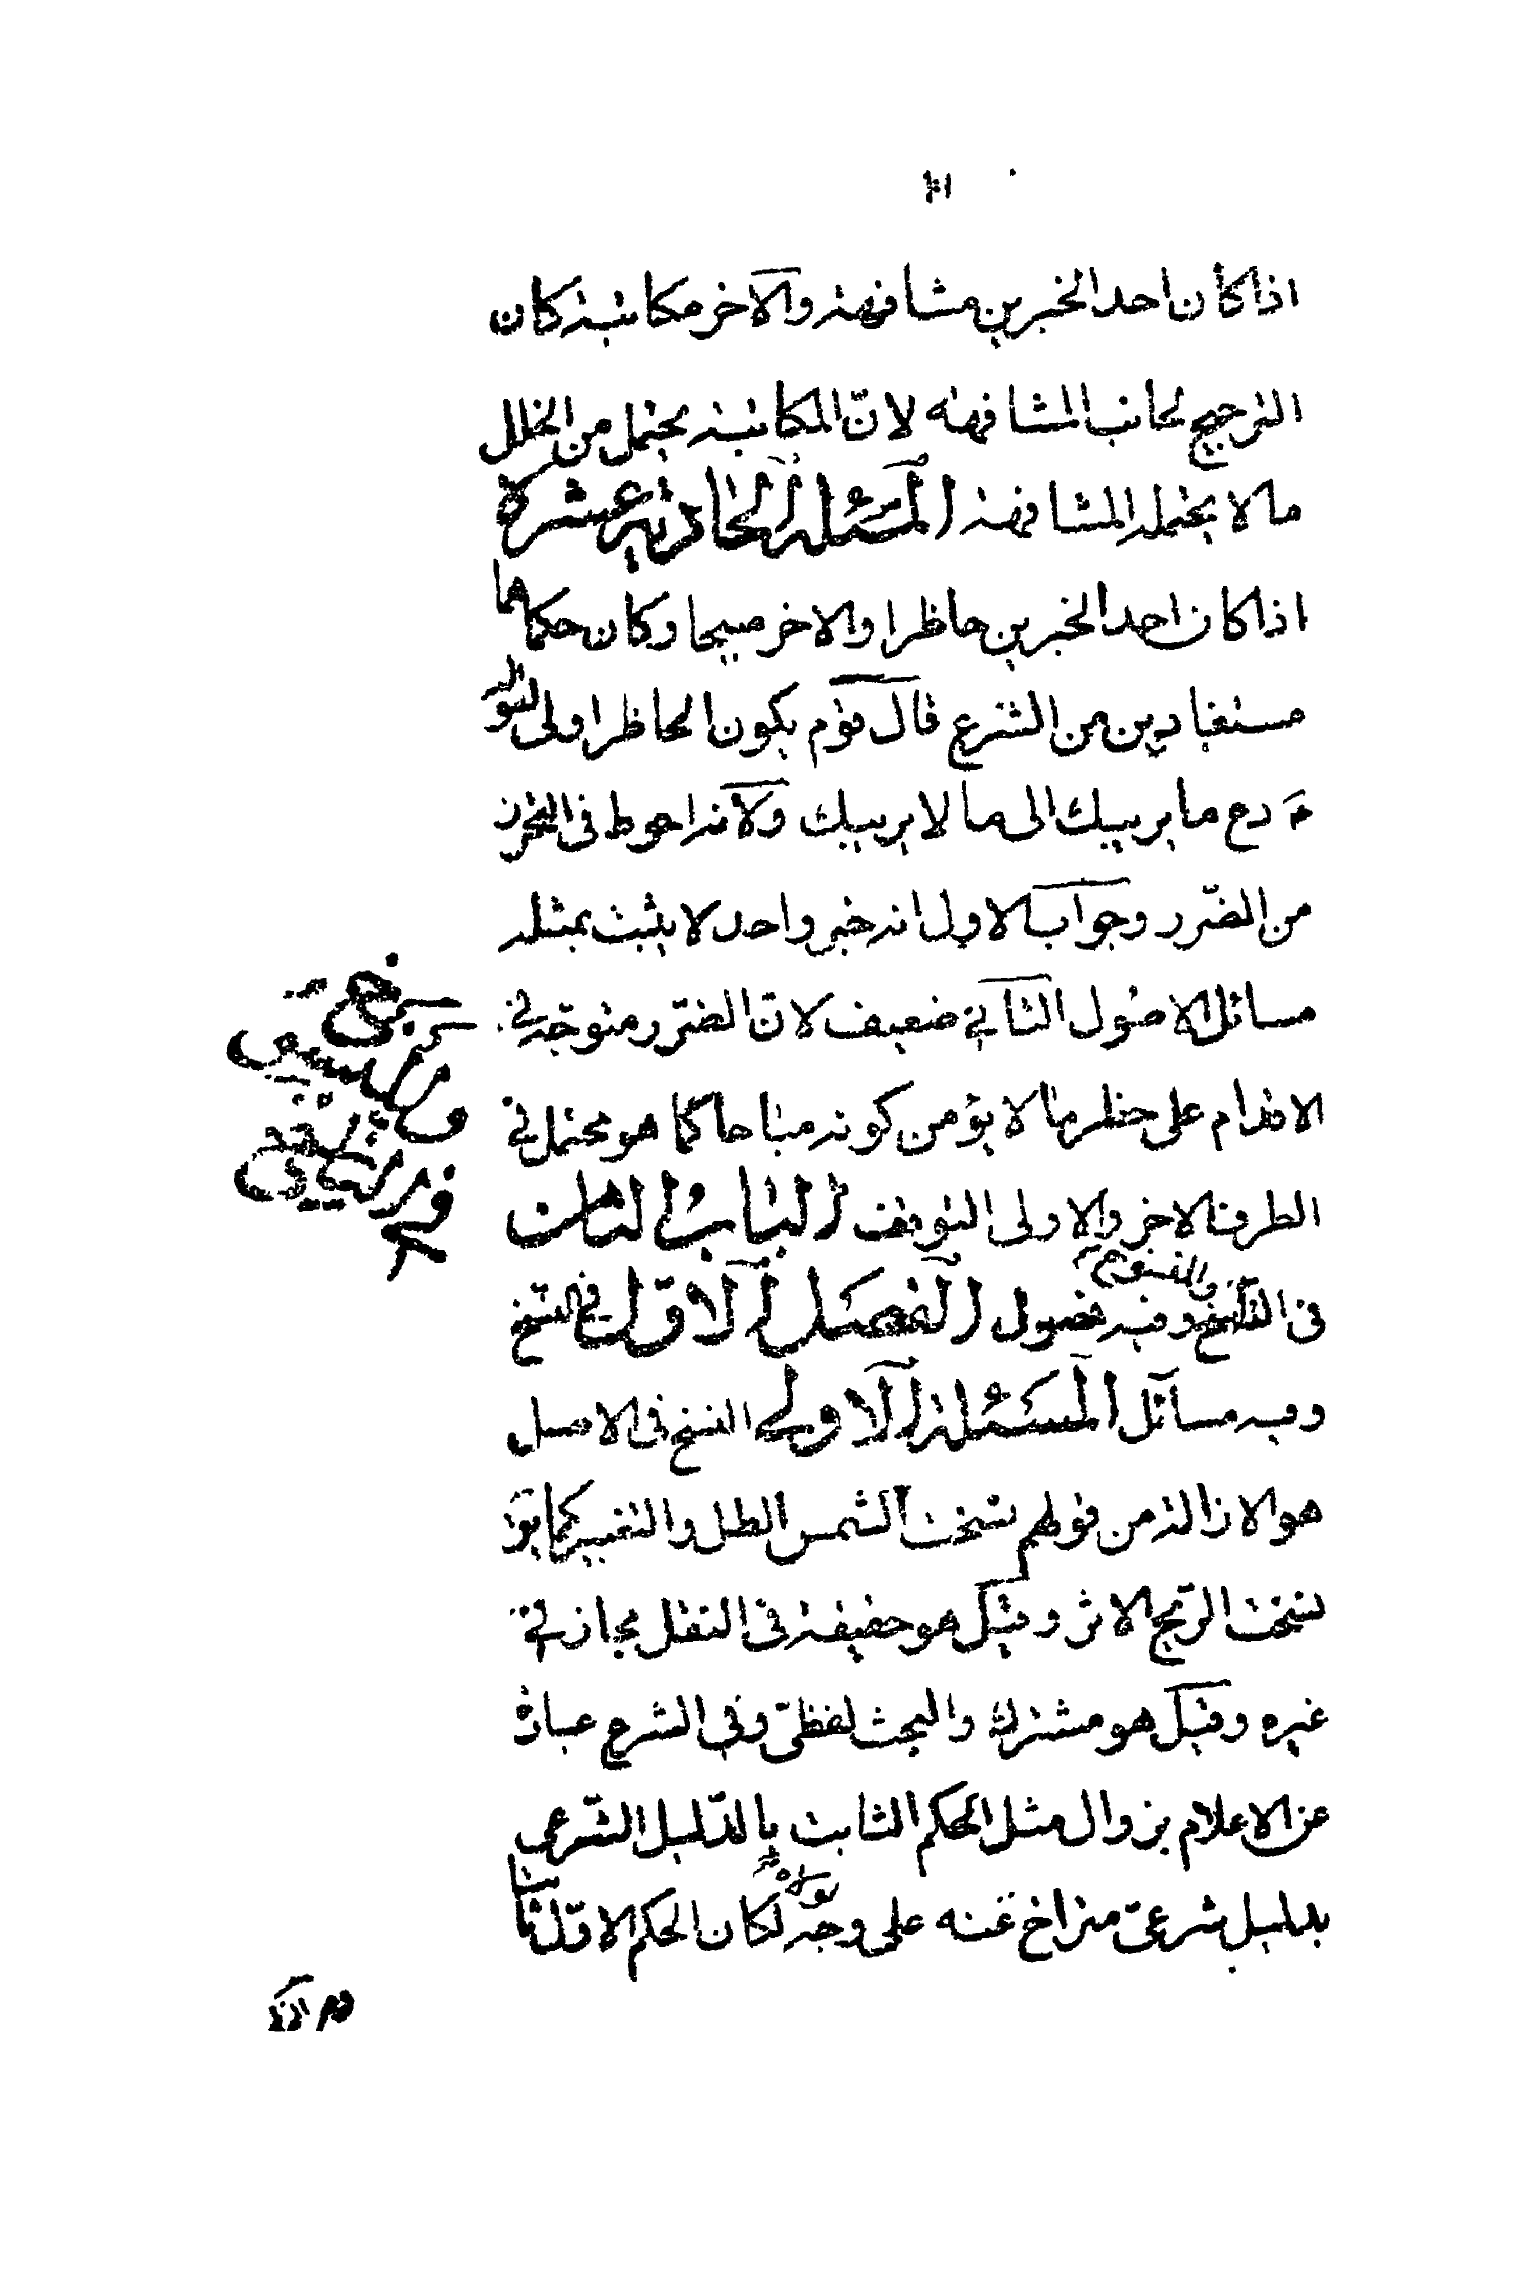 اذا كان احد الخبرين مشافهة والآخر مكاتبة كان
الترجيح لجانب المشافهة لانّ المكاتبة يحتمل من الخلل
ما لا يحتمله المشافهة المسئلة الحادية عشرة
اذا كان احد الخبرين حاظرا والاخر مبيحا وكان حكمهما
مستفادين من الشرع قال قوم يكون الحاظر اولى لقوله
دع ما يريبك الى ما لا يريبك ولانه احوط فى التحرز
من الضّرر وجواب الاول انه خبر واحد لا يثبت بمثله
مسائل الاصول الثانى ضعيف لانّ الضّرر متوجّه فى
الاقدام على حظر ما لا يؤمن كونه مباحا كما هو محتمل فى
الطرف الاخر والاولى التوقف الباب الثامن
فى النسخ وفيه فصول الفصل الاوّل فى النسخ
وفيه مسائل المسئلة الاولى النسخ فى الاصل
هو الازالة من قولهم نسخت الشمس الظل والتغيير كما يق
نسخت الرّيح الاثر وقيل هو حقيقة فى النقل مجاز فى
غيره وقيل هو مشترك والبحث لفظىّ وفى الشرع عبارة
عن الاعلام بزوال مثل الحكم الثابت بالدّليل الشّرعى
بدليل شرعىّ متراخ عنه على وجه لولاه لكان الحكم الاوّل ثابتا